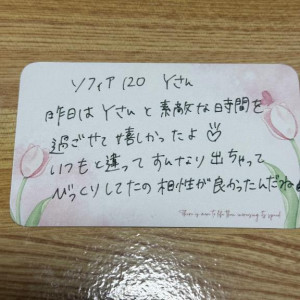 ソフィア120 Yさん
昨日はYさんと素敵な時間を
過ごせて嬉しかったよ♡
いつもと違ってすんなり出ちゃって
びっくりしてたの相性が良かったんだね